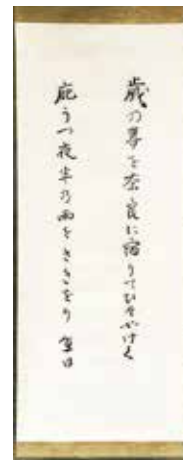 歳の暮を奈良に宿りてひそやけく
庇うつ夜半乃雨をききをり